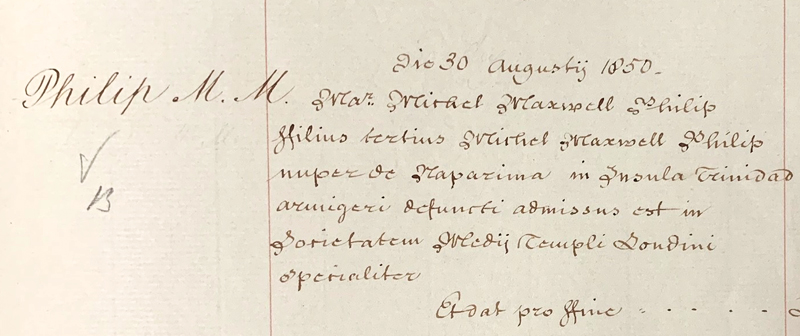 Die 30 Augustij 1850.
Philip M. M.
Mar. Michel Maxwell Philip
ffilius tertius Michel Maxwell Philip
nuper de Naparima in Insula Trinidad
armigeri defuncti admissus est in
Societatem Medij Templi Londini
specialiter
Et dat pro ffine - . . . .
B